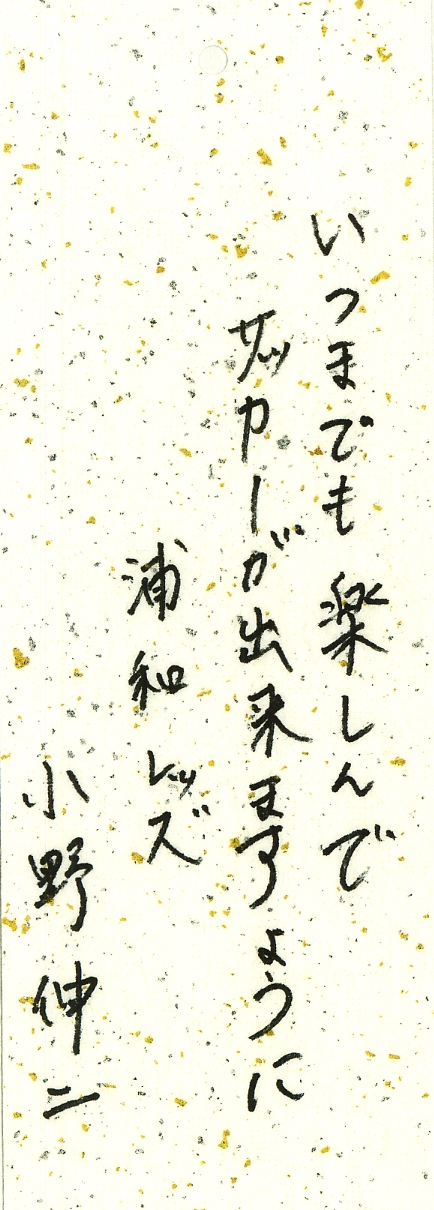 いつまでも楽しんで
サッカーが出来ますように
浦和レッズ
小野伸二